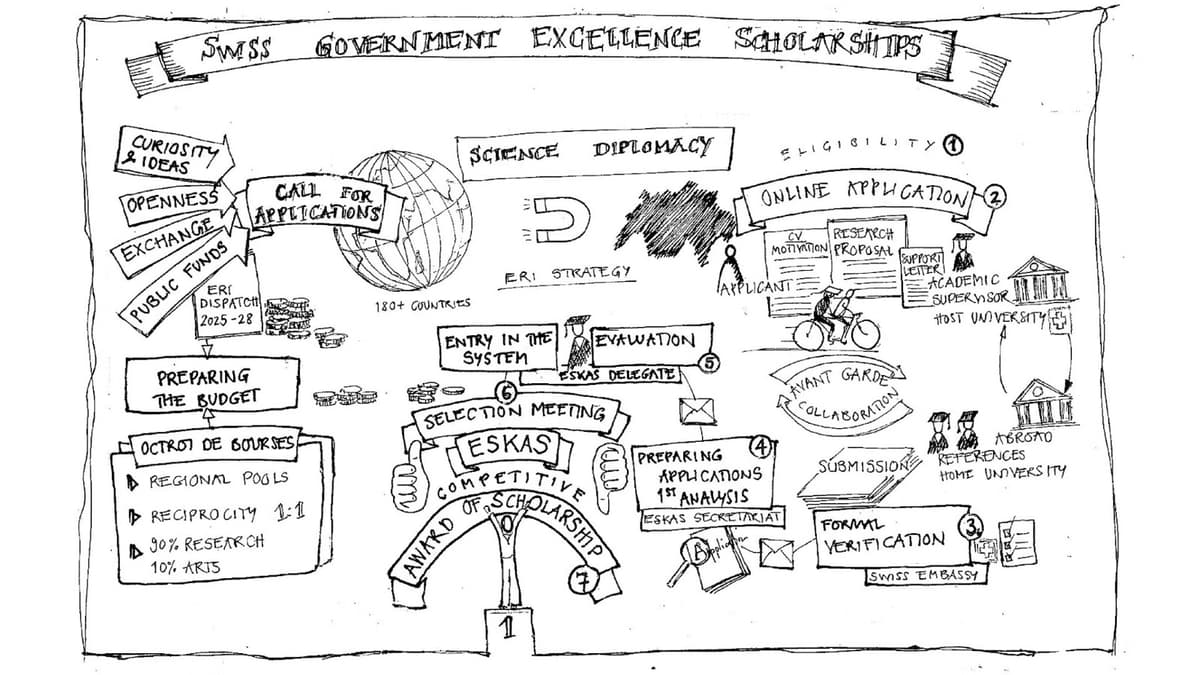 SWISS GOVERNMENT EXCELLENCE SCHOLARSHIPS
CURIOSITY
& IDEAS
OPENNESS
EXCHANGE
PUBLIC FUNDS
CALL FOR
APPLICATIONS
180+ COUNTRIES
ERI
DISPATCH
2025-28
PREPARING
THE BUDGET
OCTROI DE BOURSES
REGIONAL POOLS
RECIPROCITY 1:1
90% RESEARCH
10% ARTS
SCIENCE DIPLOMACY
ERI STRATEGY
ELIGIBILITY 1
ONLINE APPLICATION 2
APPLICANT
CV
MOTIVATION
RESEARCH
PROPOSAL
SUPPORT
LETTER
ACADEMIC
SUPERVISOR
HOST UNIVERSITY
AVANT GARDE
COLLABORATION
ABROAD
REFERENCES
HOME UNIVERSITY
SUBMISSION
FORMAL
VERIFICATION
3
SWISS EMBASSY
PREPARING
APPLICATIONS
1ST ANALYSIS
4
ESKAS SECRETARIAT
Application
EVALUATION
5
ESKAS DELEGATE
ENTRY IN THE
SYSTEM
6
SELECTION MEETING
ESKAS
COMPETITIVE
AWARD OF SCHOLARSHIP
7
1